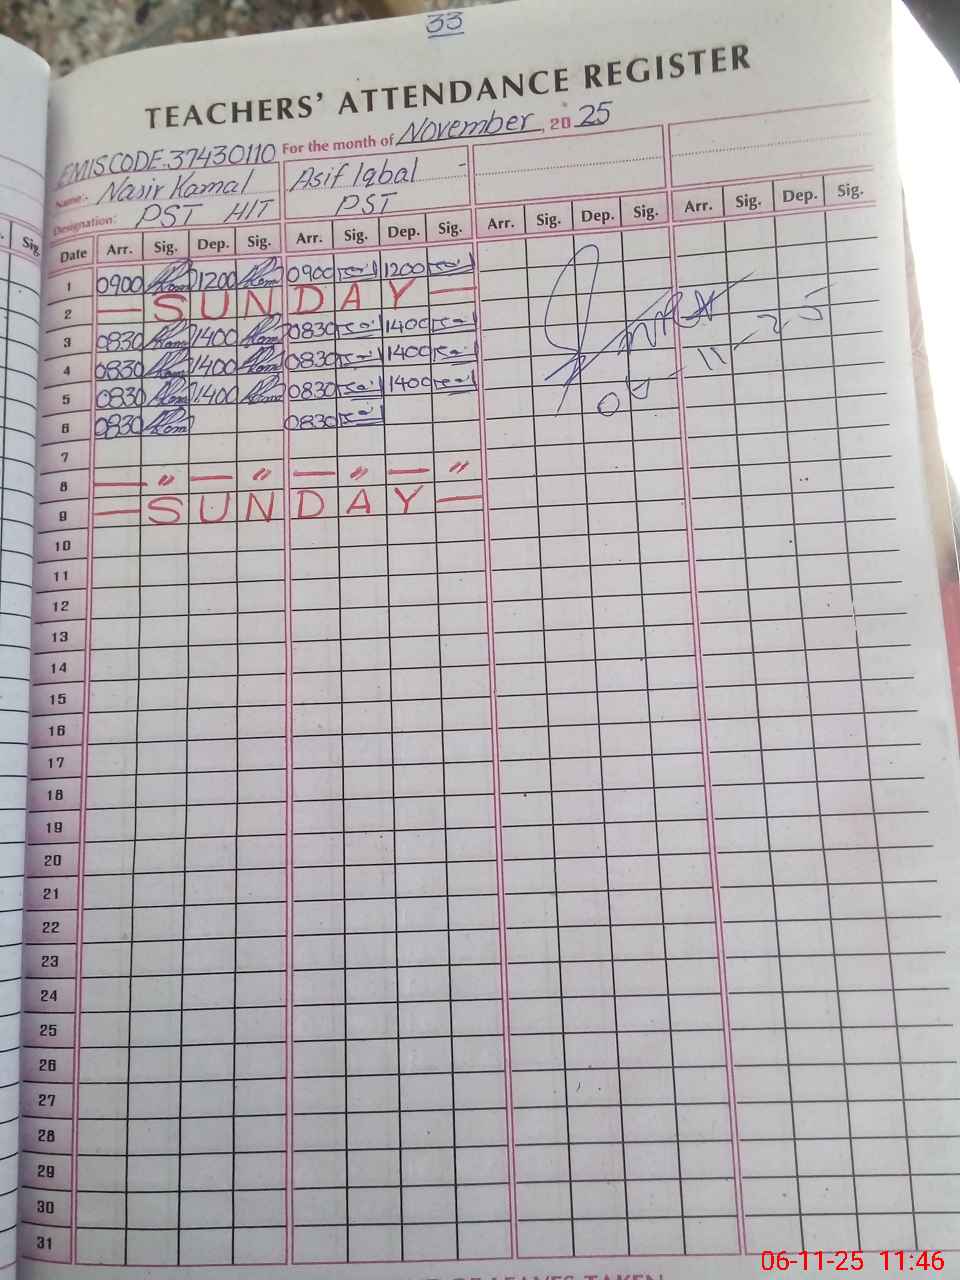 33
TEACHERS' ATTENDANCE REGISTER
For the month of November, 2025
EMIS CODE.37430110
Name:- Nasir Kamal Asif Iqbal
Designation: PST HIT PST
Date Arr. Sig. Dep. Sig. Arr. Sig. Dep. Sig. Arr. Sig. Dep. Sig. Arr. Sig. Dep. Sig.
1 0900 1200 0900 1200
2 — S U N D A Y —
3 0830 1400 0830 1400
4 0830 1400 0830 1400
5 0830 1400 0830 1400
6 0830 0830
7
8 — " — " — " — "
9 — S U N D A Y —
10
11
12
13
14
15
16
17
18
19
20
21
22
23
24
25
26
27
28
29
30
31
06-11-25 11:46